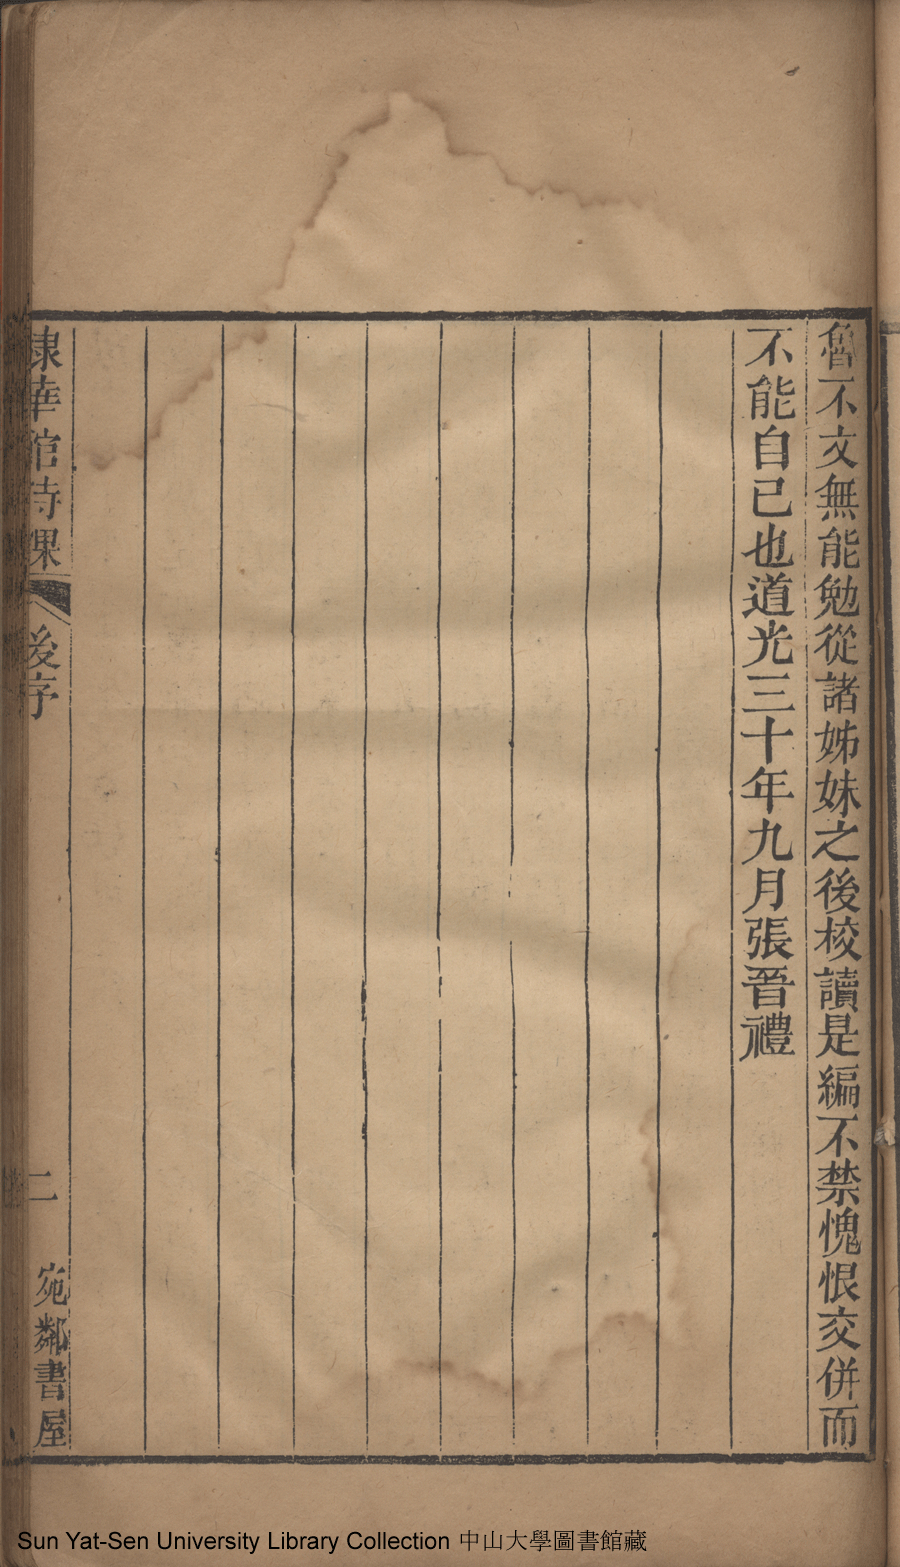 魯不文無能勉從諸姊妹之後校讀是編不禁愧恨交併而
不能自已也道光三十年九月張晉禮
棣華館詩課
後序
二
宛鄰書屋
Sun Yat-Sen University Library Collection 中山大學圖書館藏